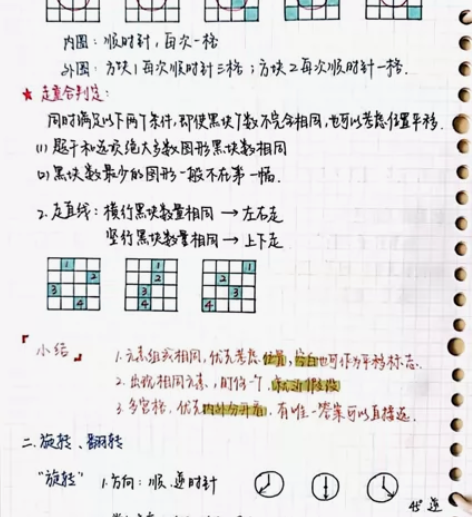 内圈：顺时针，每次一格
外圈：方块1每次顺时针三格；方块2每次顺时针一格.
★ 走重合判定：
同时满足以下两个条件，即使黑块个数不完全相同，也可以考虑位置平移.
(1) 题干和选项绝大多数图形黑块数相同
(2) 黑块数最少的图形一般不在第一幅.
2. 走直线：横行黑块数量相同 → 左右走
竖行黑块数量相同 → 上下走
1 1 1
2 2 2
3 3 3
4 4 4
「小结」
1. 元素组成相同，优先考虑位置，空白也可作为平移标志.
2. 出现相同元素，盯住一个，就近假设
3. 多宫格，优先内外分开看，有唯一答案可以直接选.
二. 旋转、翻转
“旋转” 1. 方向：顺、逆时针
45° 逆